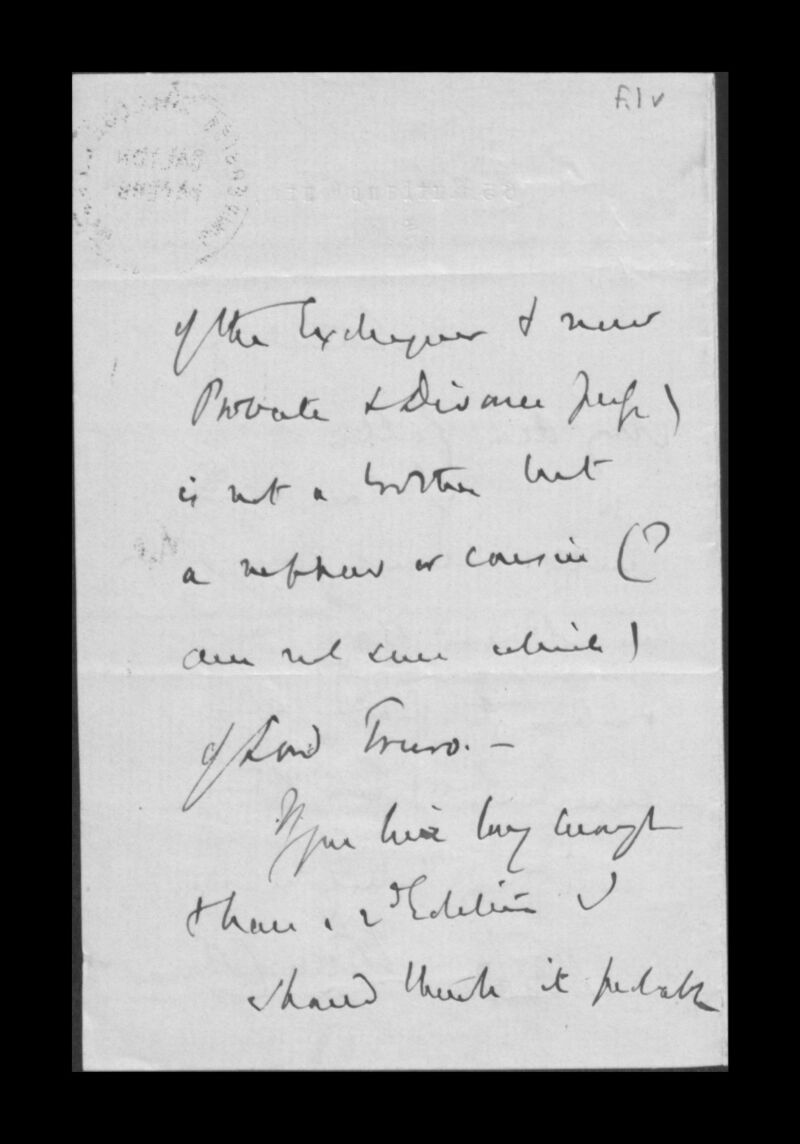 f.1v
GALTON
PAPERS
of the Exchequer & now
Probate & Divorce Judge)
is not a brother but
a nephew or cousin (?
am not sure which)
of Lord Truro. –
If you live long enough
& have a 2d Edition I
should think it probable